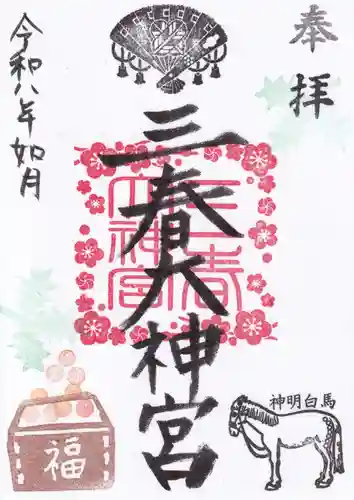 奉拝
三春大神宮
三春大神宮
令和八年如月
福
神明白馬